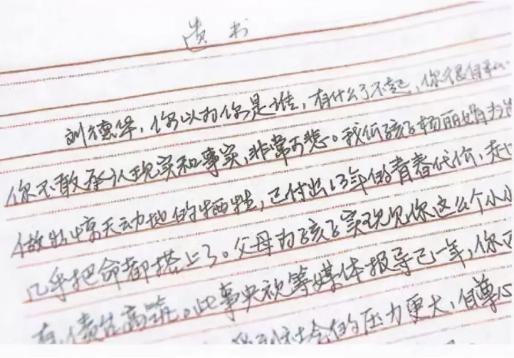 遗书
刘德华，你以为你是谁，有什么了不起，你很自私
你不敢承认现实和事实，非常可悲。我们孩子杨丽娟为
做出惊天动地的牺牲，已付出13年的青春代价，走
几乎把命都搭上了。父母为孩子实现见你这么个小
债台高筑。此事央视等媒体报导已一年，你
社会的压力更大，自尊心